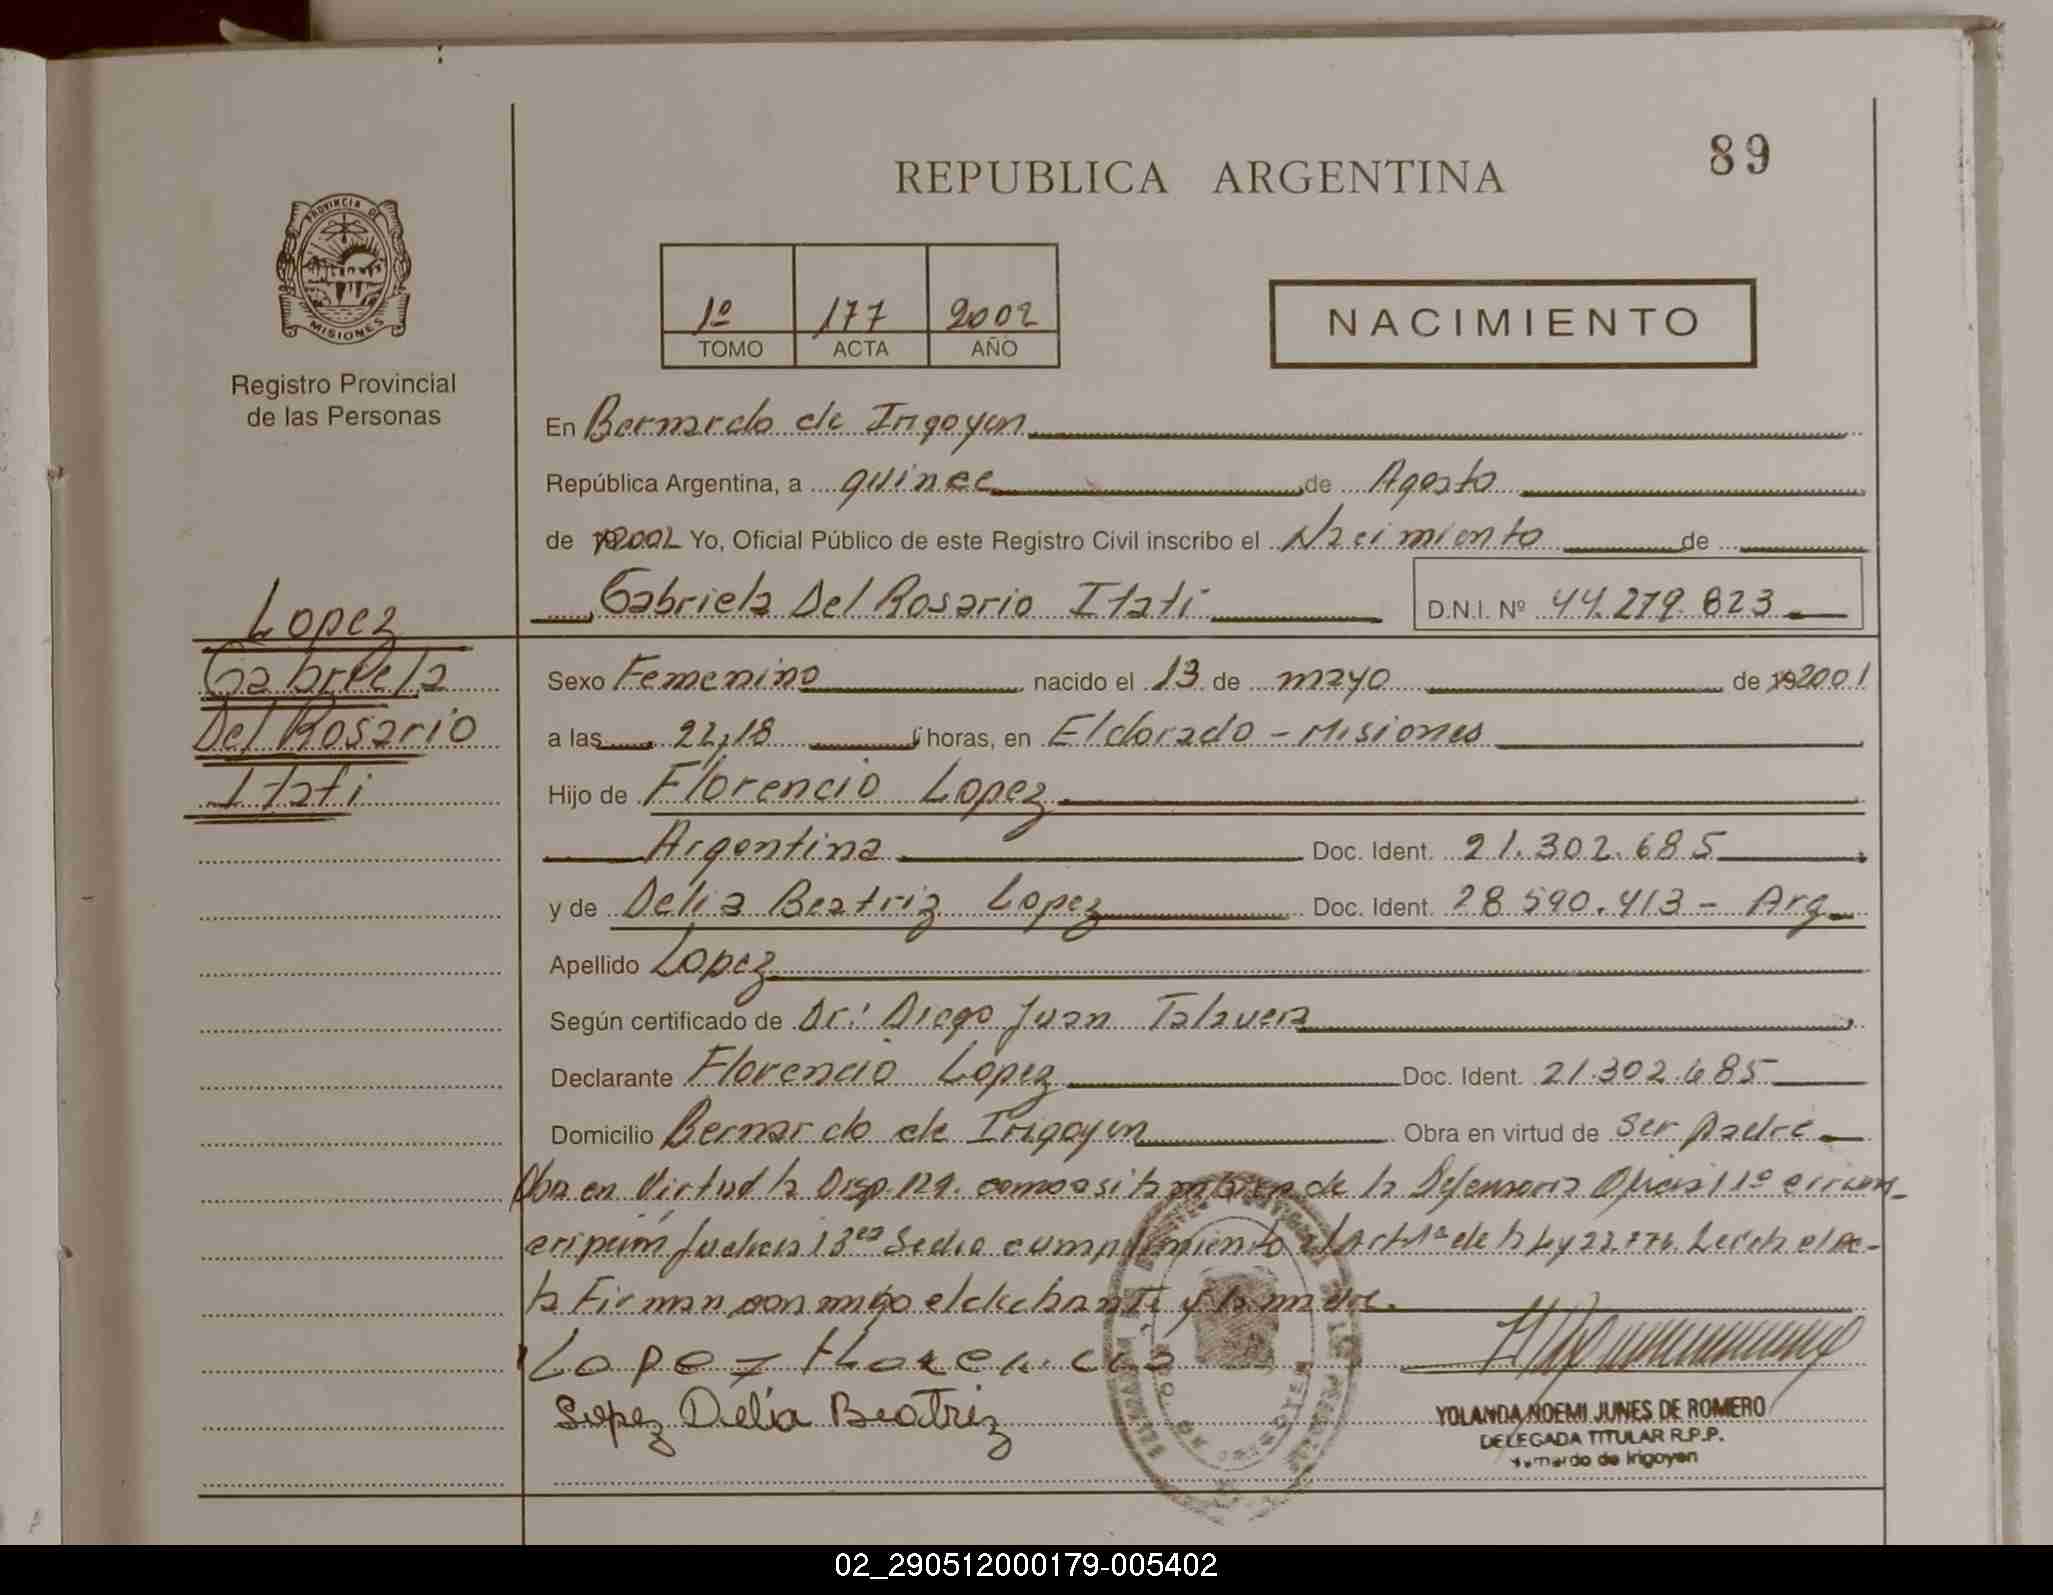 89
REPUBLICA ARGENTINA
PROVINCIA DE
MISIONES
1º 177 2002
TOMO ACTA AÑO
NACIMIENTO
Registro Provincial
de las Personas
En Bernardo de Irigoyen
República Argentina, a quince de Agosto
de 2002 Yo, Oficial Público de este Registro Civil inscribo el Nacimiento de
Gabriela Del Rosario Itatí D.N.I. Nº 44.279.823
Lopez
Gabriela
Del Rosario
Itatí
Sexo Femenino nacido el 13 de mayo de 192001
a las 22,18 horas, en Eldorado - Misiones
Hijo de Florencio Lopez
Argentina Doc. Ident. 21.302.685
y de Delia Beatriz Lopez Doc. Ident. 28.590.413 - Arg
Apellido Lopez
Según certificado de Dr: Diego Juan Talavera
Declarante Florencio Lopez Doc. Ident. 21.302.685
Domicilio Bernardo de Irigoyen Obra en virtud de Ser padre
Obra en Virtud la Disp. 129. como asi de la Defensoria Oficial 1º circuns-
cripción Judicial 3era cumplimiento de la ley Leida el ac-
ta Firman conmigo el declarante y la madre.
Lopez Florencio
Lopez Delia Beatriz
YOLANDA NOEMI JUNES DE ROMERO
DELEGADA TITULAR R.P.P.
Bernardo de Irigoyen
02_290512000179-005402